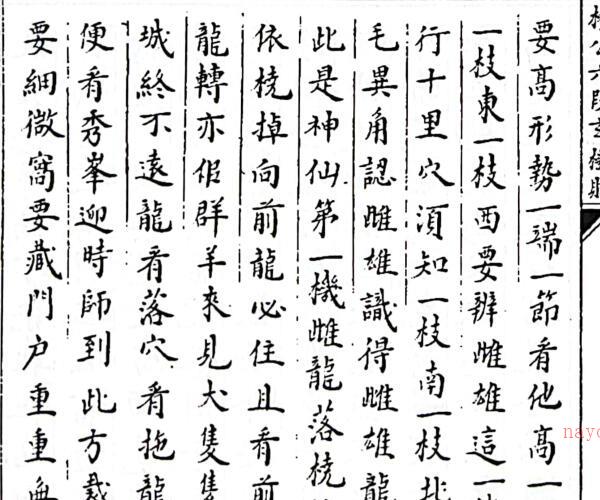 楊公六段玄機賦
要高形勢一端一節看他高一
一枝東一枝西要辨雌雄這一
行十里穴須知一枝南一枝北
毛異角認雌雄識得雌雄龍
此是神仙第一機雌龍落橈
依橈掉向前龍必住且看前
龍轉亦佀群羊來見犬隻隻
城終不遠龍看落穴看拖龍
便看秀峯迎時師到此方裁
要細微窩要藏門户重重
nayo